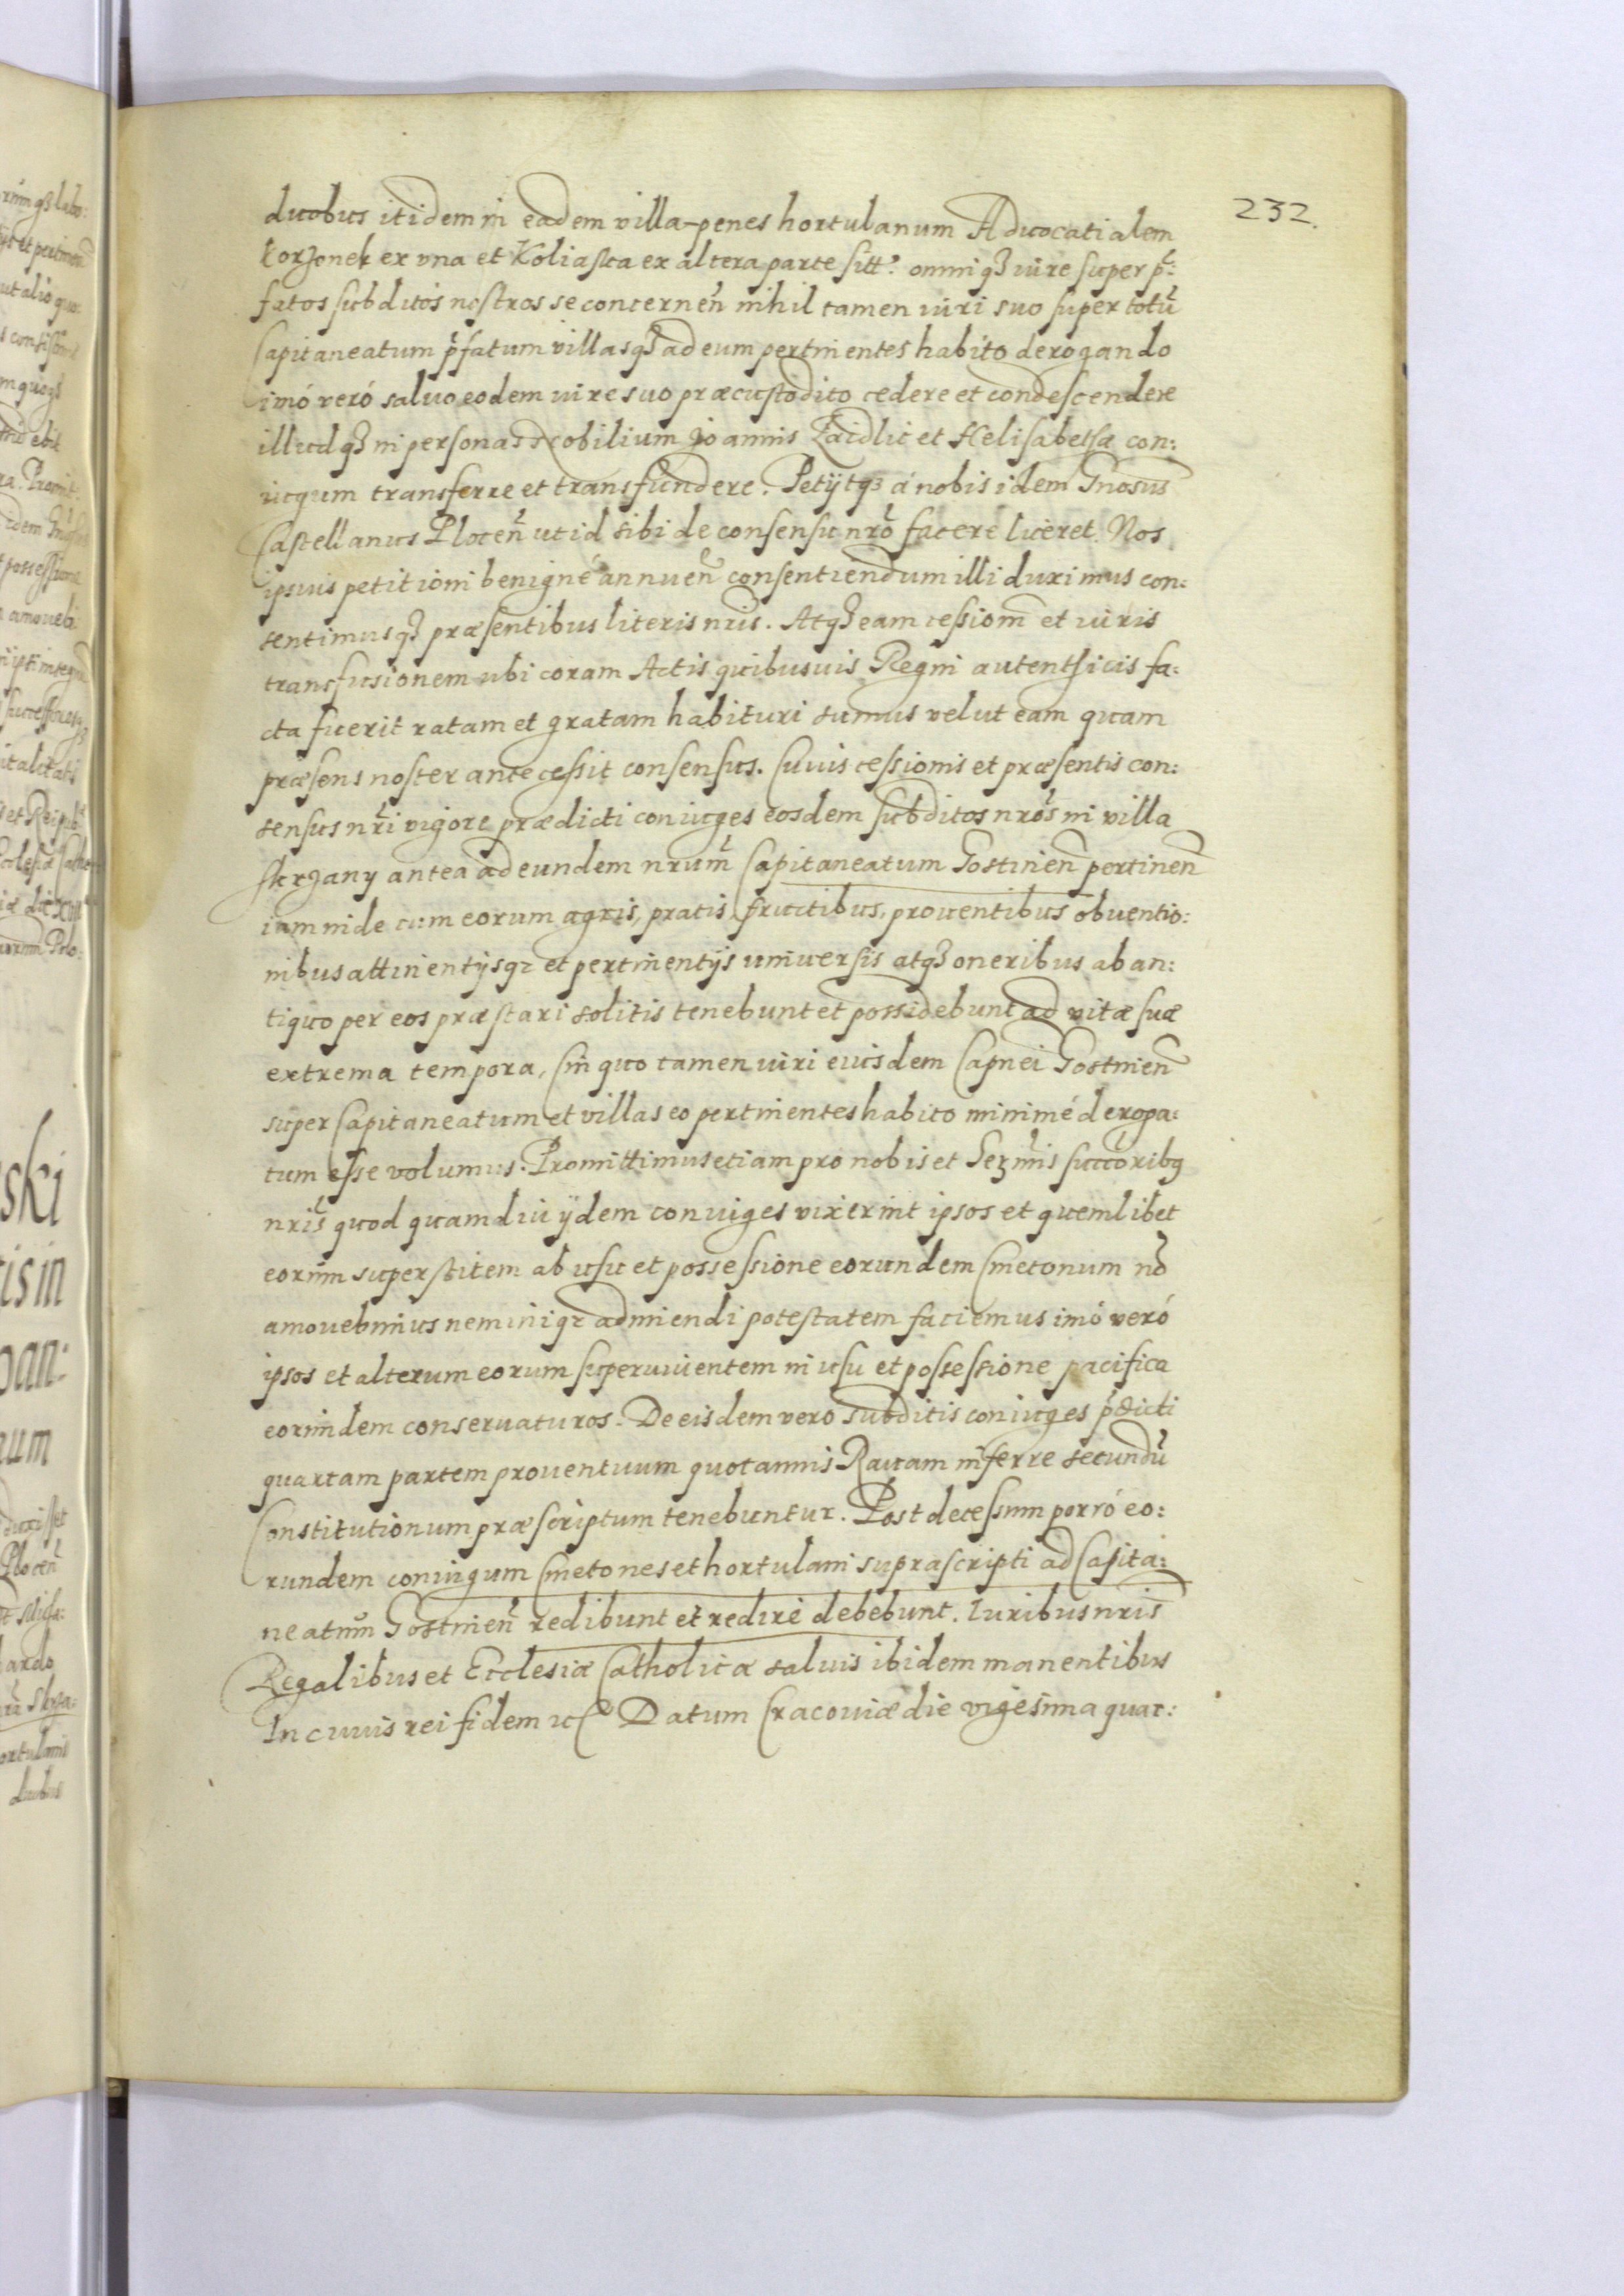 232.
duobus itidem in eadem villa penes hortulanum Aduocatialem
Korzonek ex vna et Koliaska ex altera parte sitt. omniq3 iure super p̃:
fatos subditos nostros se concernen̄ nihil tamen iuri suo super totũ
Capitaneatum p̃fatum villasq3 ad eum pertinentes habito derogando
imó veró saluo eodem iure suo præcustodito cedere et condescendere
illudq3 in personas Nobilium Joannis Zaidlic et Helisabethæ con:
iugum transferre et transfundere. Petijtq3 á nobis idem Gnosus
Castellanus Plocen̄ ut id sibi de consensu nr̃o facere liceret. Nos
ipsius petitioni benigné annuen̄ consentiendum illi duximus con:
sentimusq3 præsentibus literis nr̃is. Atq3 eam cessionem̄ et iuris
transfusionem ubi coram Actis quibusuis Regni autenthicis fa:
cta fuerit ratam et gratam habituri sumus velut eam quam
præsens noster antecessit consensus. Cuius cessionis et præsentis con:
sensus nr̃i vigore prædicti coniuges eosdem subditos nr̃os in villa
Skrzany antea ad eundem nr̃um Capitaneatum Gostinien̄ pertinen̄
iam inde cum eorum agris, pratis, fructibus, prouentibus obuentio:
nibus attinentijsq3 et pertinentijs vniuersis atq3 oneribus ab an:
tiquo per eos præstari solitis tenebunt et possidebunt ad vitæ suæ
extrema tempora, In quo tamen iuri eiusdem Capnei Gostinien̄
super Capitaneatum et villas eo pertinentes habito minimé deroga:
tum esse volumus. Promittimus etiam pro nobis et Serm̃is succ̃oribq3
nr̃is quod quamdiu ijdem coniuges vixerint ipsos et quemlibet
eorum superstitem ab usu et possessione eorundem Cmetonum nõ
amouebimus neminiq3 adimendi potestatem faciemus imó veró
ipsos et alterum eorum superuiuentem in usu et possessione pacifica
eorundem conseruaturos. De eisdem vero subditis coniuges p̃dicti
quartam partem prouentuum quotannis Rauam inferre secundũ
Constitutionum præscriptum tenebuntur. Post decessum porró eo:
rundem coniugum Cmetones et hortulani suprascripti ad Capita:
neatum Gostinien̄ redibunt et redire debebunt. Iuribus nr̃is
Regalibus et Ecclesiæ Catholicæ saluis ibidem manentibus
In cuius rei fidem etc Datum Cracouiæ die vigesima quar: